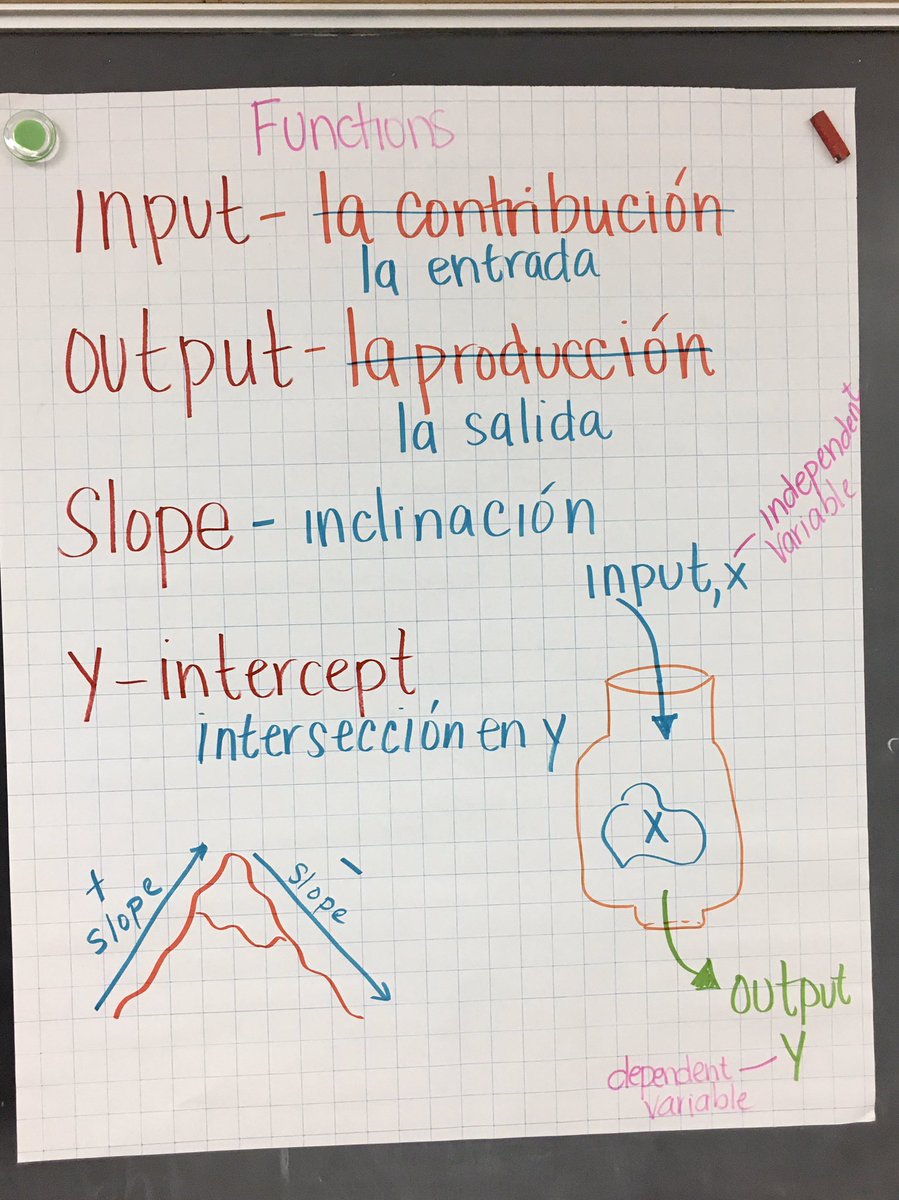 Functions
Input - la contribución
la entrada
Output - la producción
la salida
Slope - inclinación
y-intercept
intersección en y
input, x - independent
variable
x
+
slope
-
slope
output
y - dependent
variable